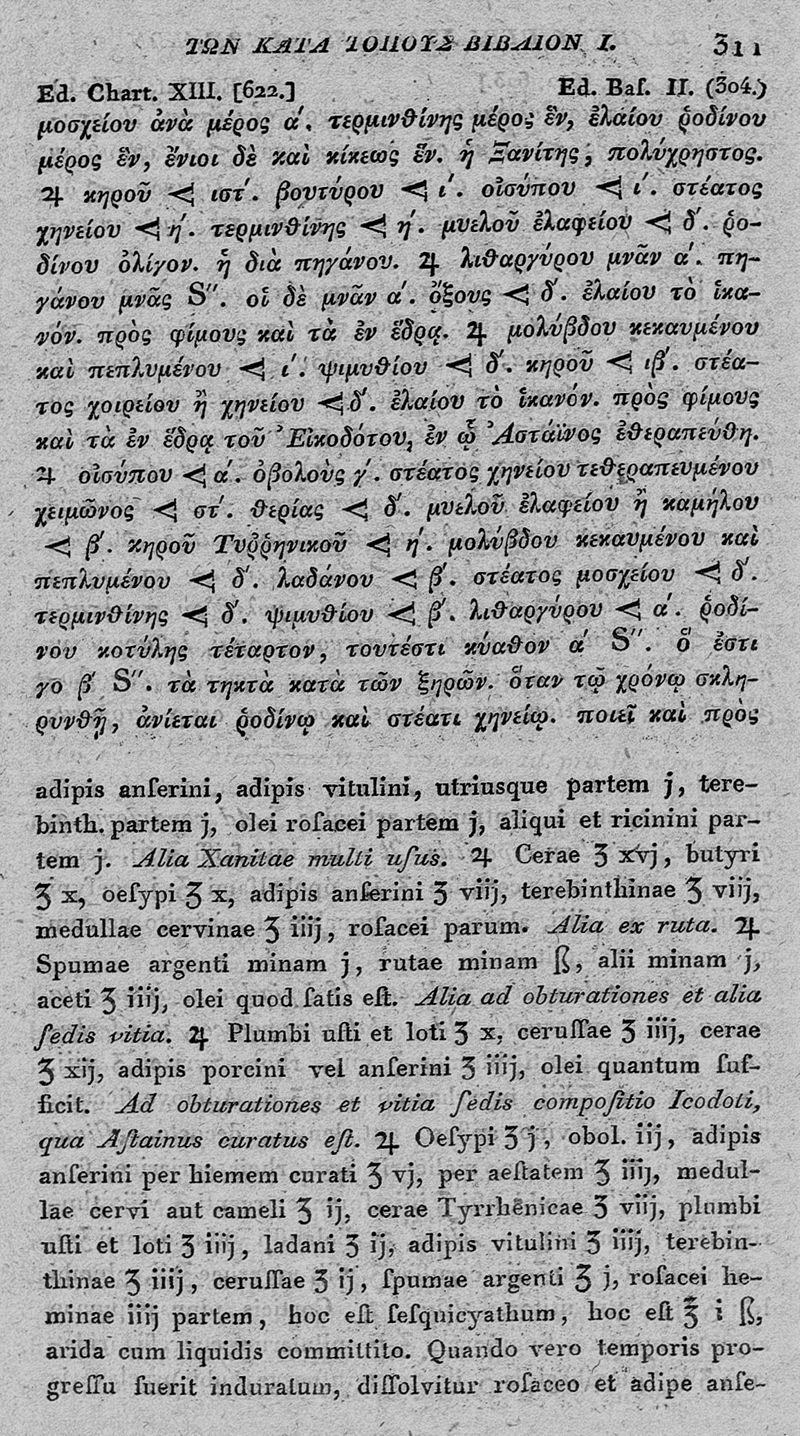 ΤΩΝ ΚΑΤΑ ΤΟΠΟΥΣ ΒΙΒΛΙΟΝ Ι. 311
Ed. Chart. XIII. [622.] Ed. Baſ. II. (304.)
μοσχείου ἀνὰ μέρος α΄. τερμινθίνης μέρος ἓν, ἐλαίου ῥοδίνου
μέρος ἓν, ἔνιοι δὲ καὶ κίκεως ἕν. ἡ Ξανίτης, πολύχρηστος.
♃ κηροῦ ⋞ ιστ΄. βουτύρου ⋞ ι΄. οἰσύπου ⋞ ι΄. στέατος
χηνείου ⋞ η΄. τερμινθίνης ⋞ η΄. μυελοῦ ἐλαφείου ⋞ δ΄. ῥο-
δίνου ὀλίγον. ἡ διὰ πηγάνου. ♃ λιθαργύρου μνᾶν α΄. πη-
γάνου μνᾶς S″. οἱ δὲ μνᾶν α΄. ὄξους ⋞ δ΄. ἐλαίου τὸ ἱκα-
νόν. πρὸς φίμους καὶ τὰ ἐν ἕδρᾳ. ♃ μολύβδου κεκαυμένου
καὶ πεπλυμένου ⋞ ι΄. ψιμυθίου ⋞ δ΄. κηροῦ ⋞ ιβ΄. στέα-
τος χοιρείου ἢ χηνείου ⋞ δ΄. ἐλαίου τὸ ἱκανόν. πρὸς φίμους
καὶ τὰ ἐν ἕδρᾳ τοῦ Εἰκοδότου, ἐν ᾧ Ἀστάϊνος ἐθεραπεύθη.
♃ οἰσύπου ⋞ α΄. ὀβολοὺς γ΄. στέατος χηνείου τεθεραπευμένου
χειμῶνος ⋞ στ΄. θερίας ⋞ δ΄. μυελοῦ ἐλαφείου ἢ καμήλου
⋞ β΄. κηροῦ Τυῤῥηνικοῦ ⋞ η΄. μολύβδου κεκαυμένου καὶ
πεπλυμένου ⋞ δ΄. λαδάνου ⋞ β΄. στέατος μοσχείου ⋞ δ΄.
τερμινθίνης ⋞ δ΄. ψιμυθίου ⋞ β΄. λιθαργύρου ⋞ α΄. ῥοδί-
νου κοτύλης τέταρτον, τουτέστι κύαθον α΄ S″. ὅ ἐστι
γο β΄ S″. τὰ τηκτὰ κατὰ τῶν ξηρῶν. ὅταν τῷ χρόνῳ σκλη-
ρυνθῇ, ἀνίεται ῥοδίνῳ καὶ στέατι χηνείῳ. ποιεῖ καὶ πρὸς
adipis anſerini, adipis vitulini, utriusque partem j, tere-
binth. partem j, olei roſacei partem j, aliqui et ricinini par-
tem j. Alia Xanitae multi uſus. ♃ Cerae ʒ xvj, butyri
ʒ x, oeſypi ʒ x, adipis anſerini ʒ viij, terebinthinae ʒ viij,
medullae cervinae ʒ iiij, roſacei parum. Alia ex ruta. ♃
Spumae argenti minam j, rutae minam ß, alii minam j,
aceti ʒ iiij, olei quod ſatis eſt. Alia ad obturationes et alia
ſedis vitia. ♃ Plumbi uſti et loti ʒ x, ceruſſae ʒ iiij, cerae
ʒ xij, adipis porcini vel anſerini ʒ iiij, olei quantum ſuf-
ficit. Ad obturationes et vitia ſedis compoſitio Icodoti,
qua Aſtainus curatus eſt. ♃ Oeſypi ʒ j, obol. iij, adipis
anſerini per hiemem curati ʒ vj, per aeſtatem ʒ iiij, medul-
lae cervi aut cameli ʒ ij, cerae Tyrrhenicae ʒ viij, plumbi
uſti et loti ʒ iiij, ladani ʒ ij, adipis vitulini ʒ iiij, terebin-
thinae ʒ iiij, ceruſſae ʒ ij, ſpumae argenti ʒ j, roſacei he-
minae iiij partem, hoc eſt ſeſquicyathum, hoc eſt ℥ i ß,
arida cum liquidis committito. Quando vero temporis pro-
greſſu fuerit induratum, diſſolvitur roſaceo et adipe anſe-